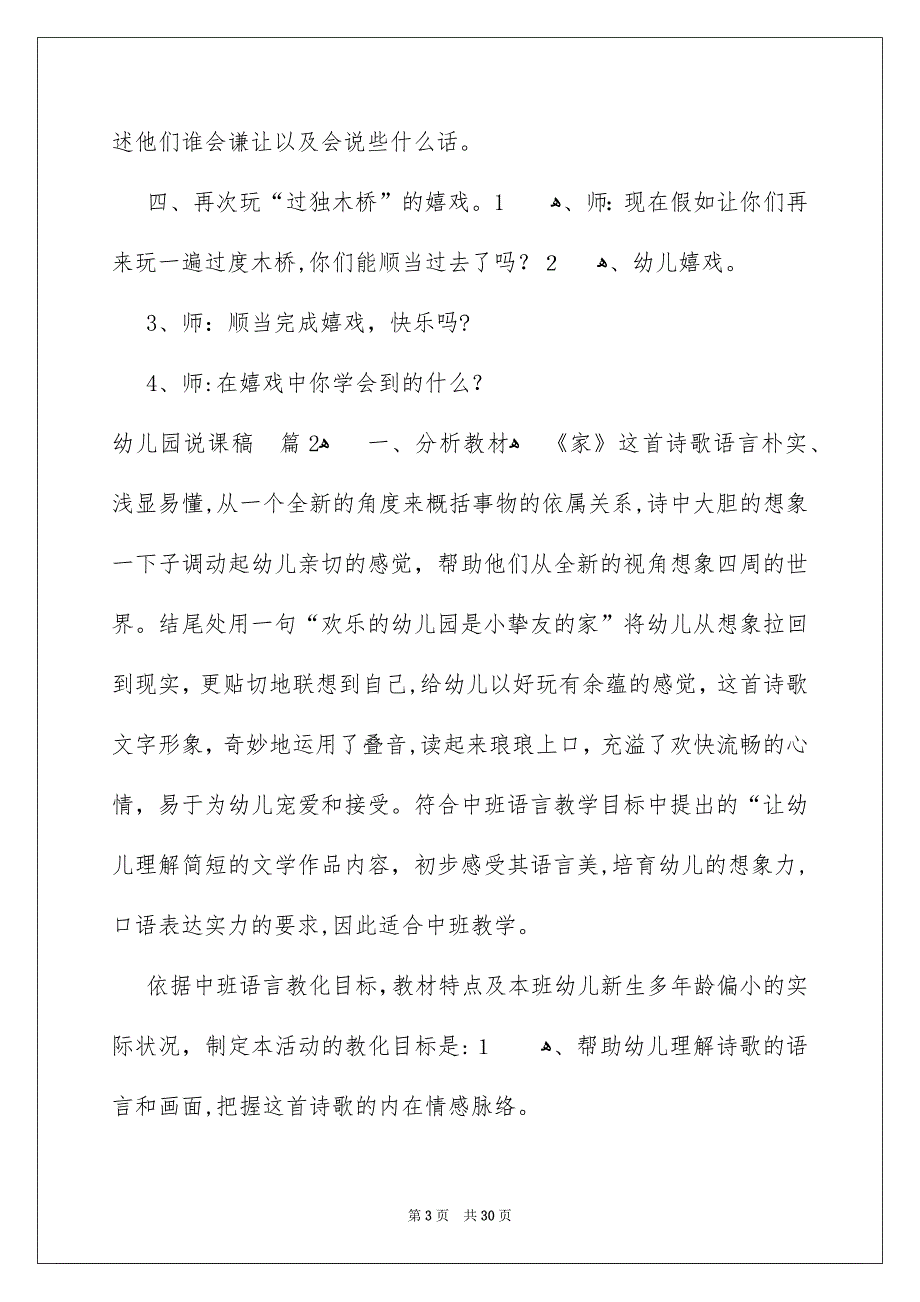 述他们谁会谦让以及会说些什么话。
四、再次玩“过独木桥”的嬉戏。1 ﻫ、师: 现在假如让你们再
来玩一遍过度木桥,你们能顺当过去了吗？ 2 ﻫ、幼儿嬉戏。
3、师：顺当完成嬉戏，快乐吗?
4、师:在嬉戏中你学会到的什么？
幼儿园说课稿 篇2ﻫ 一、分析教材ﻫ 《家》这首诗歌语言朴实、
浅显易懂,从一个全新的角度来概括事物的依属关系,诗中大胆的想象
一下子调动起幼儿亲切的感觉，帮助他们从全新的视角想象四周的世
界。结尾处用一句“欢乐的幼儿园是小挚友的家”将幼儿从想象拉回
到现实，更贴切地联想到自己,给幼儿以好玩有余蕴的感觉，这首诗歌
文字形象，奇妙地运用了叠音,读起来琅琅上口，充溢了欢快流畅的心
情，易于为幼儿宠爱和接受。符合中班语言教学目标中提出的“让幼
儿理解简短的文学作品内容，初步感受其语言美,培育幼儿的想象力,
口语表达实力的要求,因此适合中班教学。
依据中班语言教化目标,教材特点及本班幼儿新生多年龄偏小的实
际状况，制定本活动的教化目标是: 1 ﻫ、帮助幼儿理解诗歌的语
言和画面,把握这首诗歌的内在情感脉络。
第 3 页 共 30 页